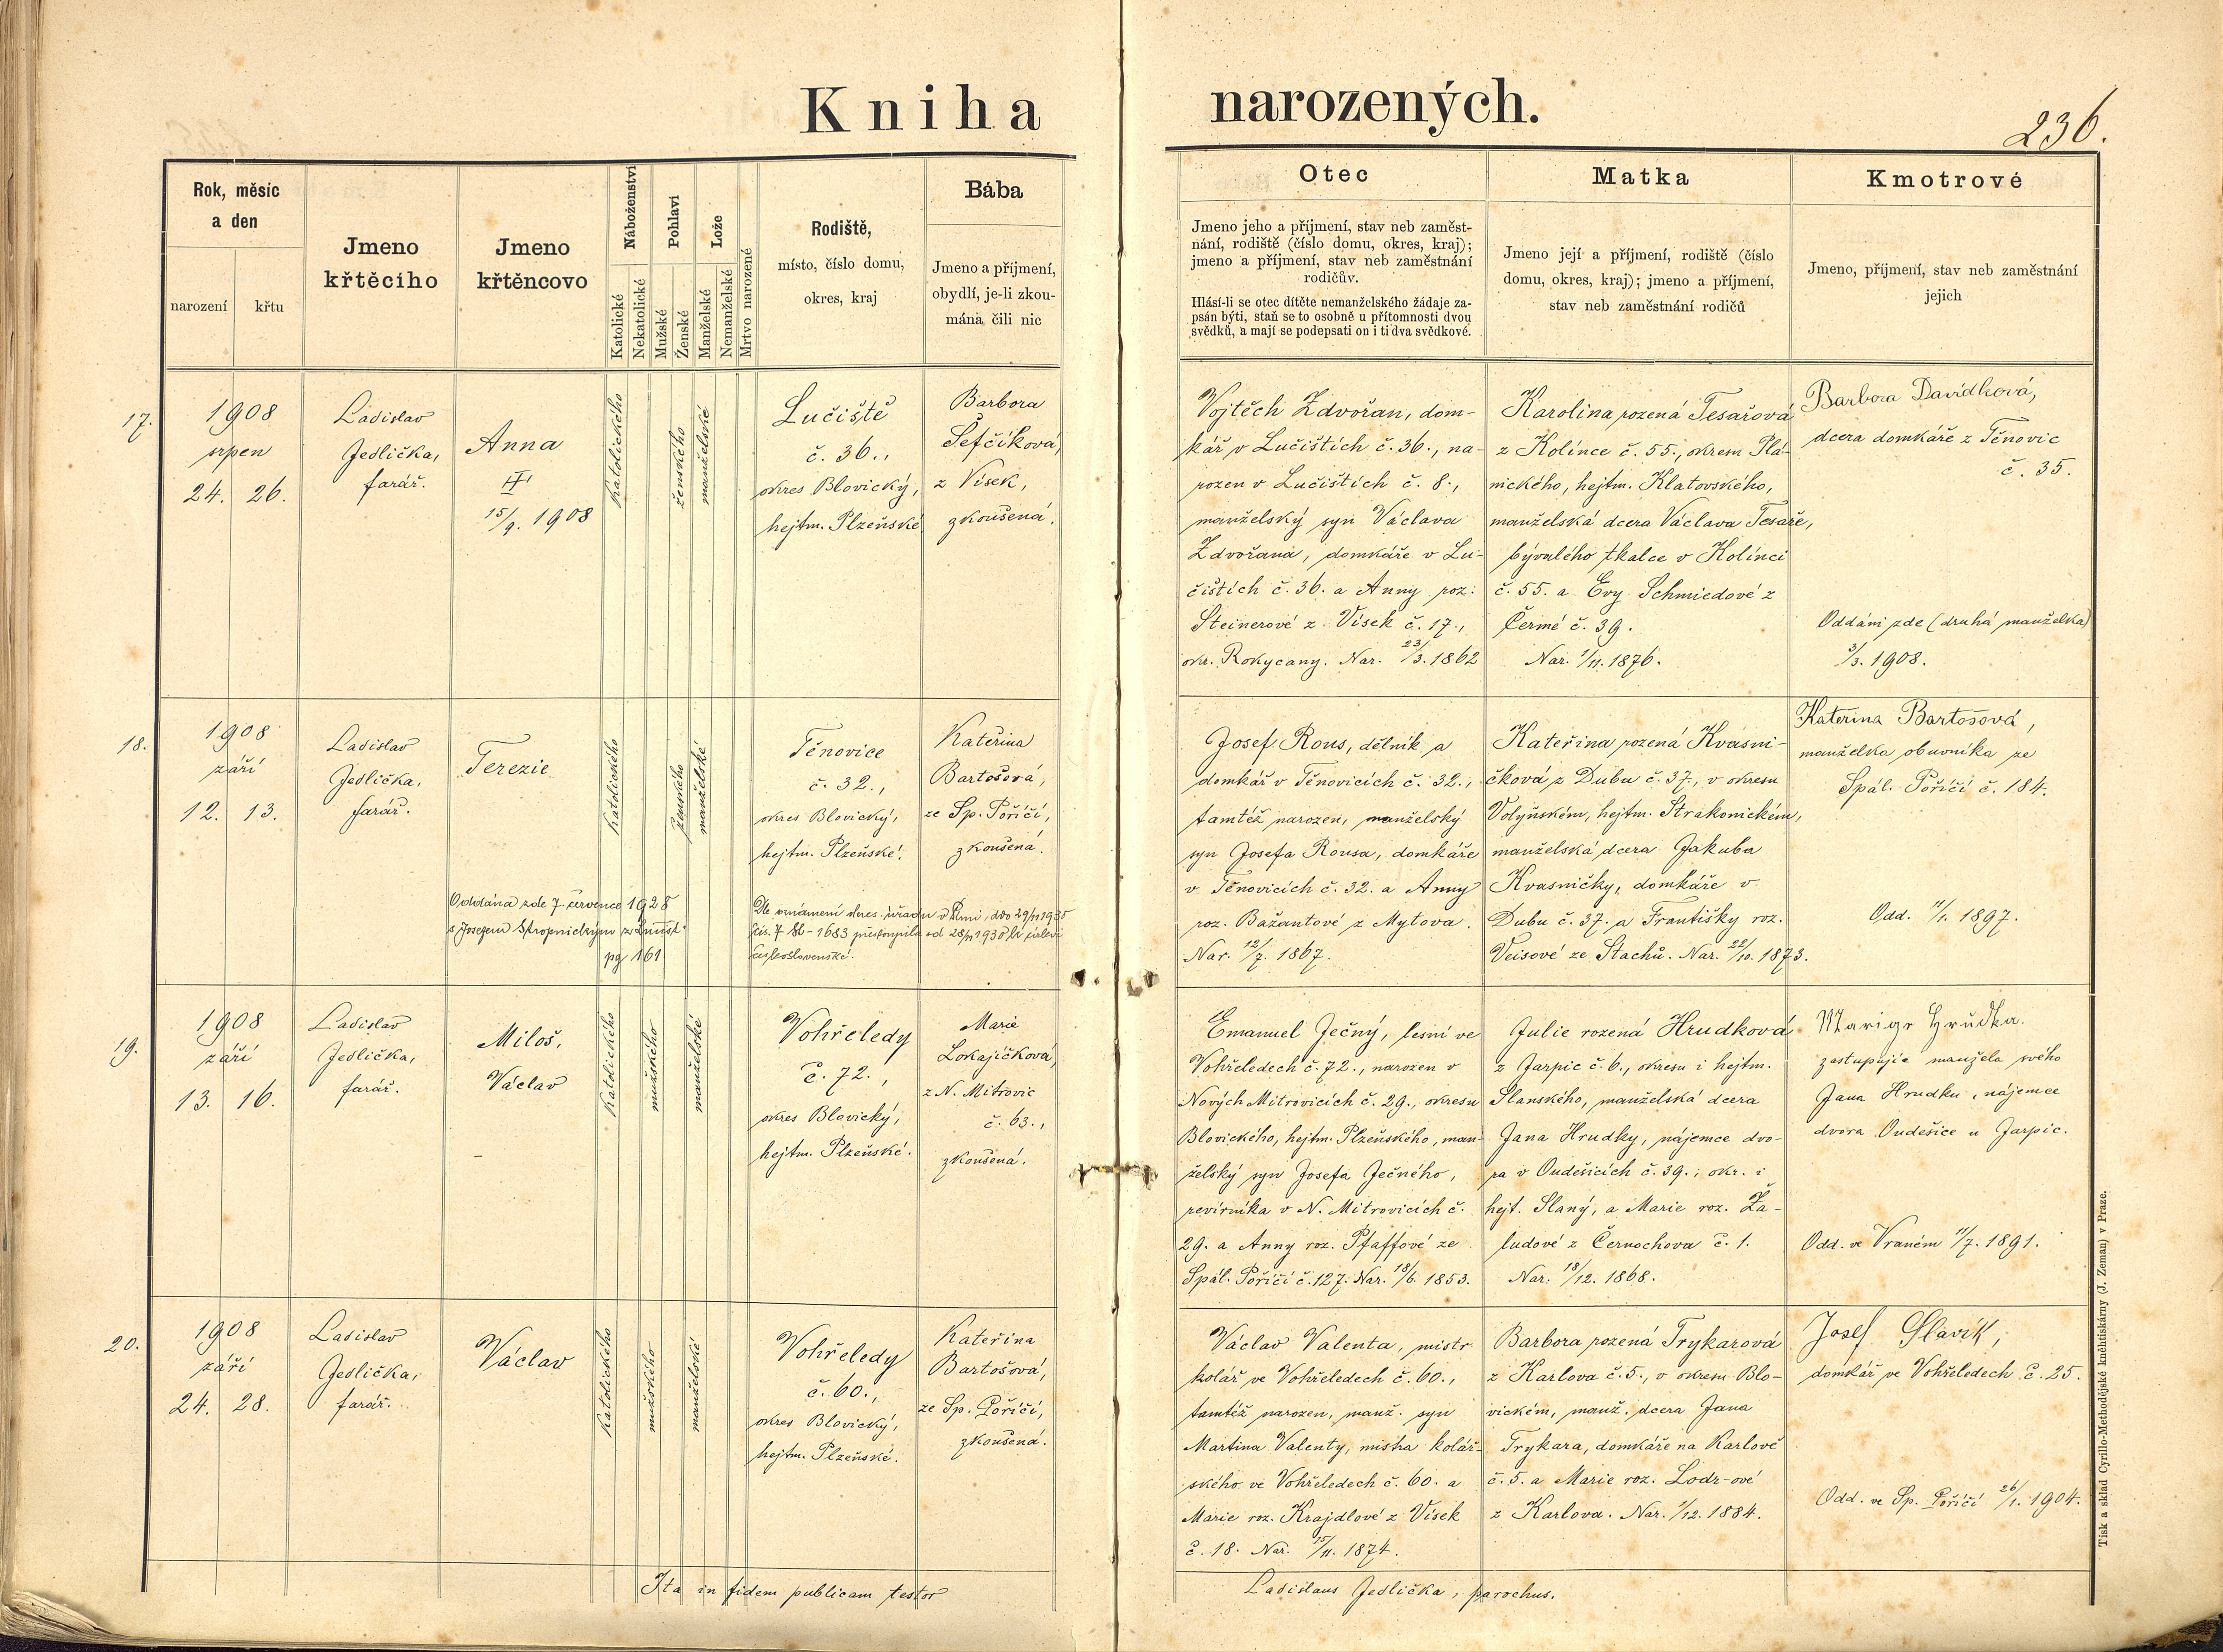 Kniha narozených.
236.
Rok, měsíc
a den
narození
křtu
Jmeno
křtěcího
Jmeno
křtěncovo
Náboženství
Katolické
Nekatolické
Pohlaví
Mužské
Ženské
Lože
Manželské
Nemanželské
Mrtvo narozené
Rodiště,
místo, číslo domu,
okres, kraj
Bába
Jmeno a příjmení,
obydlí, je-li zkou-
mána čili nic
Otec
Jmeno jeho a příjmení, stav neb zaměst-
nání, rodiště (číslo domu, okres, kraj);
jmeno a příjmení, stav neb zaměstnání
rodičův.
Hlásí-li se otec dítěte nemanželského žádaje za-
psán býti, staň se to osobně u přítomnosti dvou
svědků, a mají se podepsati on i ti dva svědkové.
Matka
Jmeno její a příjmení, rodiště (číslo
domu, okres, kraj); jmeno a příjmení,
stav neb zaměstnání rodičů
Kmotrové
Jmeno, příjmení, stav neb zaměstnání
jejich
17.
1908
srpen
24. 26.
Ladislav
Jedlička,
farář.
Anna
15/9. 1908
katolického
ženského
manželské
Lučiště
č. 36.,
okres Blovický,
hejtm. Plzeňské
Barbora
Šefčíková,
z Vísek,
zkoušená.
Vojtěch Zdvořan, dom-
kář v Lučištích č. 36., na-
rozen v Lučištích č. 8.,
manželský syn Václava
Zdvořana, domkáře v Lu-
čištích č. 36. a Anny roz:
Steinerové z Vísek č. 17.,
okr. Rokycany. Nar. 23/3. 1862
Karolina rozená Tesařová
z Kolince č. 55., okresu Plá-
nického, hejtm. Klatovského,
manželská dcera Václava Tesaře,
bývalého tkalce v Kolinci
č. 55. a Evy Schmiedové z
Čermé č. 39.
Nar. 1/11. 1876.
Barbora Davídková,
dcera domkáře z Těnovic
č. 35.
Oddáni zde (druhá manželka)
3/3. 1908.
18.
1908
září
12. 13.
Ladislav
Jedlička,
farář.
Terezie
Oddána zde 7. července 1928
s Josefem Stropnickým
pg 161
katolického
ženského
manželské
Těnovice
č. 32.,
okres Blovický,
hejtm. Plzeňské.
Dle oznámení okres. úřadu v Plzni, ddo 29/11 1930
čís. 7 86-1683 přestoupila od 28/11 1930 k církvi
československé.
Kateřina
Bartošová,
ze Sp. Poříčí,
zkoušená.
Josef Rous, dělník a
domkář v Těnovicích č. 32.,
tamtéž narozen, manželský
syn Josefa Rousa, domkáře
v Těnovicích č. 32. a Anny
roz. Bažantové z Mytova.
Nar. 12/7. 1867.
Kateřina rozená Kvasni-
čková z Dubu č. 37., v okresu
Volyňském, hejtm. Strakonickém,
manželská dcera Jakuba
Kvasničky, domkáře v
Dubu č. 37. a Františky roz.
Veisové ze Stachů. Nar. 22/10. 1873.
Kateřina Bartošová,
manželka obuvníka ze
Spál. Poříčí č. 184.
Odd. 11/1. 1897.
19.
1908
září
13. 16.
Ladislav
Jedlička,
farář.
Miloš,
Václav
katolického
mužského
manželské
Vohřeledy
č. 72.,
okres Blovický,
hejtm. Plzeňské.
Marie
Lokajíčková,
z N. Mitrovic
č. 63.,
zkoušená.
Emanuel Ječný, lesní ve
Vohřeledech č. 72., narozen v
Nových Mitrovicích č. 29., okresu
Blovického, hejtm. Plzeňského, man-
želský syn Josefa Ječného,
revírníka v N. Mitrovicích č.
29. a Anny roz. Pfaffové ze
Spál. Poříčí č. 127. Nar. 18/6. 1853.
Julie rozená Hrudková
z Jarpic č. 6., okresu i hejtm.
Slanského, manželská dcera
Jana Hrudky, nájemce dvo-
ra v Oudešicích č. 39., okr. i
hejt. Slaný, a Marie roz. Ža-
ludové z Černochova č. 1.
Nar. 18/12. 1868.
Hrudka.
zastupujíc manžela svého
Jana Hrudku, nájemce
dvora Oudešice u Jarpic.
Odd. ve Vraném 11/7. 1891.
20.
1908
září
24. 28.
Ladislav
Jedlička,
farář.
Václav
katolického
mužského
manželské
Vohřeledy
č. 60.,
okres Blovický,
hejtm. Plzeňské.
Kateřina
Bartošová,
ze Sp. Poříčí,
zkoušená.
Václav Valenta, mistr
kolář ve Vohřeledech č. 60.,
tamtéž narozen, manž. syn
Martina Valenty, mistra kolář-
ského ve Vohřeledech č. 60. a
Marie roz. Krajdlové z Vísek
č. 18. Nar. 15/11. 1874.
Barbora rozená Trykarová
z Karlova č. 5., v okresu Blo-
vickém, manž. dcera Jana
Trykara, domkáře na Karlově
č. 5. a Marie roz. Lodr-ové
z Karlova. Nar. 1/12. 1884.
Josef Slavík,
domkář ve Vohřeledech č. 25.
Odd. ve Sp. Poříčí 26/1. 1904.
Ita in fidem publicam testor
Ladislaus Jedlička, parochus.
Tisk a sklad Cyrillo-Methodějské kněhtiskárny (J. Zeman) v Praze.